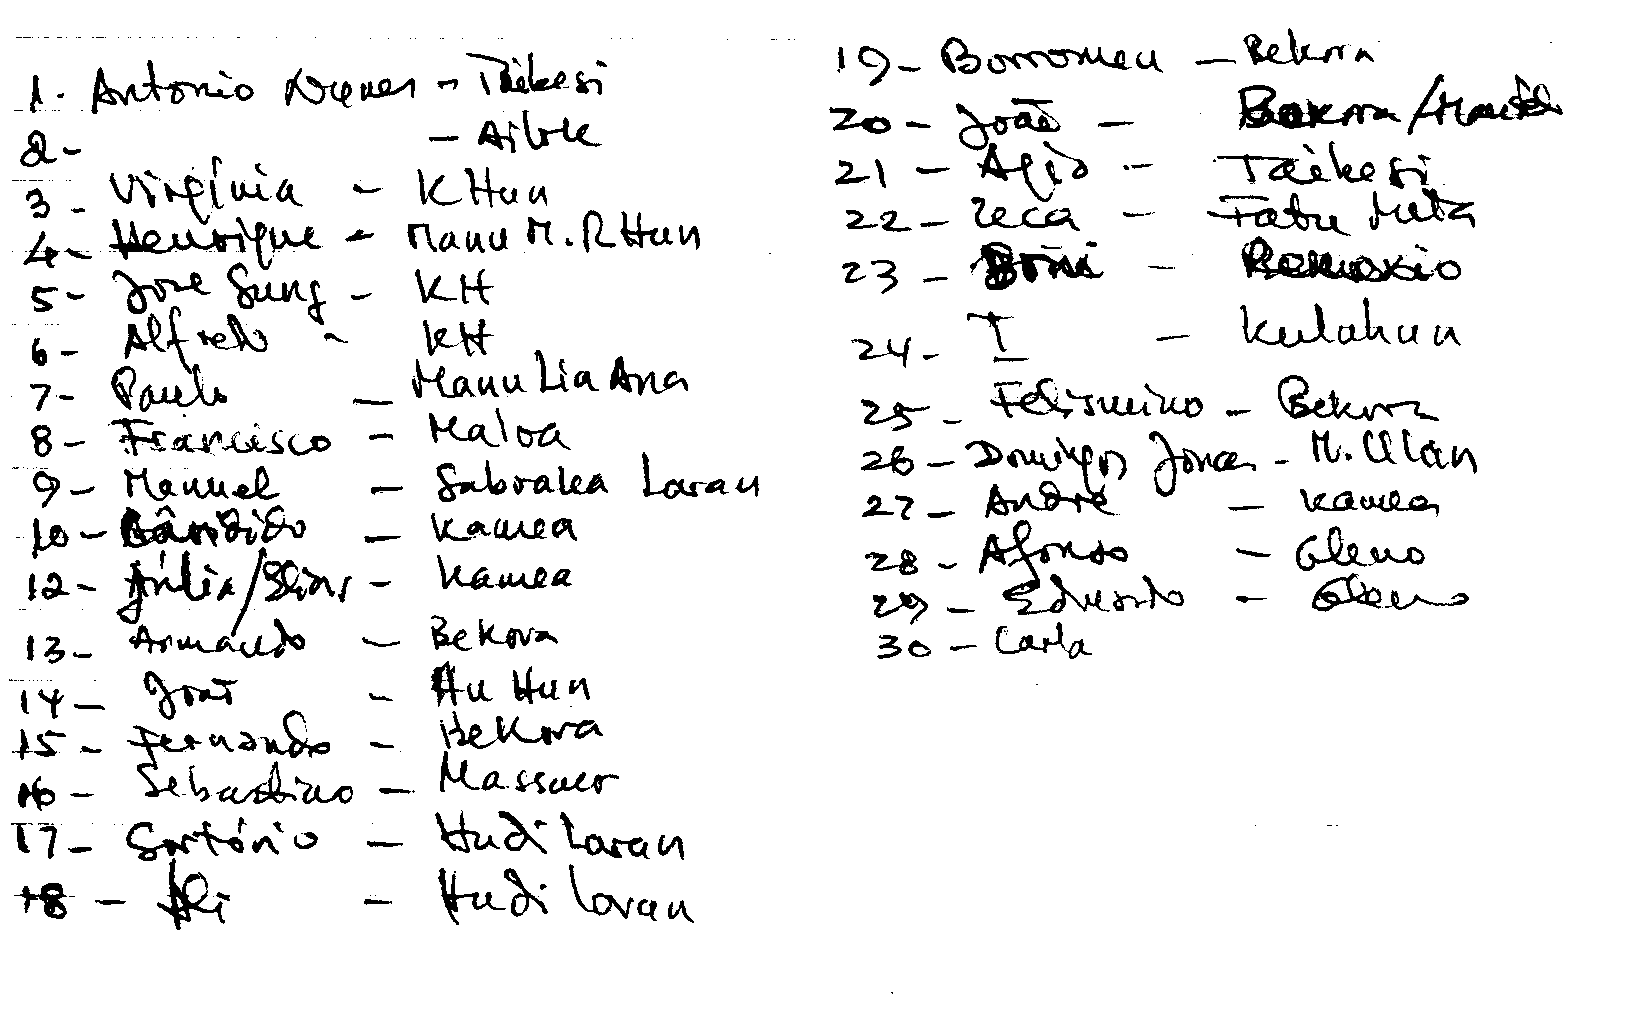 1. António Nunes - Taikesi
2- - Ailok
3- Virgínia - K Hun
4- Henrique - Manu M. R Hun
5- José Sung - KH
6- Alfredo - KH
7- Paulo - Manu Lia Ana
8- Francisco - Maloa
9- Manuel - Sabraka Laran
10- Cândido - Kamea
12- Júlia/Elias - Kamea
13- Armando - Bekora
14- João - Au Hun
15- Fernando - Bekora
16- Sebastião - Massaur
17- Sortónio - Hudi Laran
18- Ali - Hudi Laran
19- Borromeu - Bekora
20- João - Bekora/
21- Agio - Taikesi
22- Zeca - Fatu Meta
23- Boni -
24- I - Kulahun
25- Felismino - Bekora
26- Domingos Jonas - M. Ulan
27- André - Kamea
28- Afonso - Gleno
29- Eduardo - Gleno
30- Carla